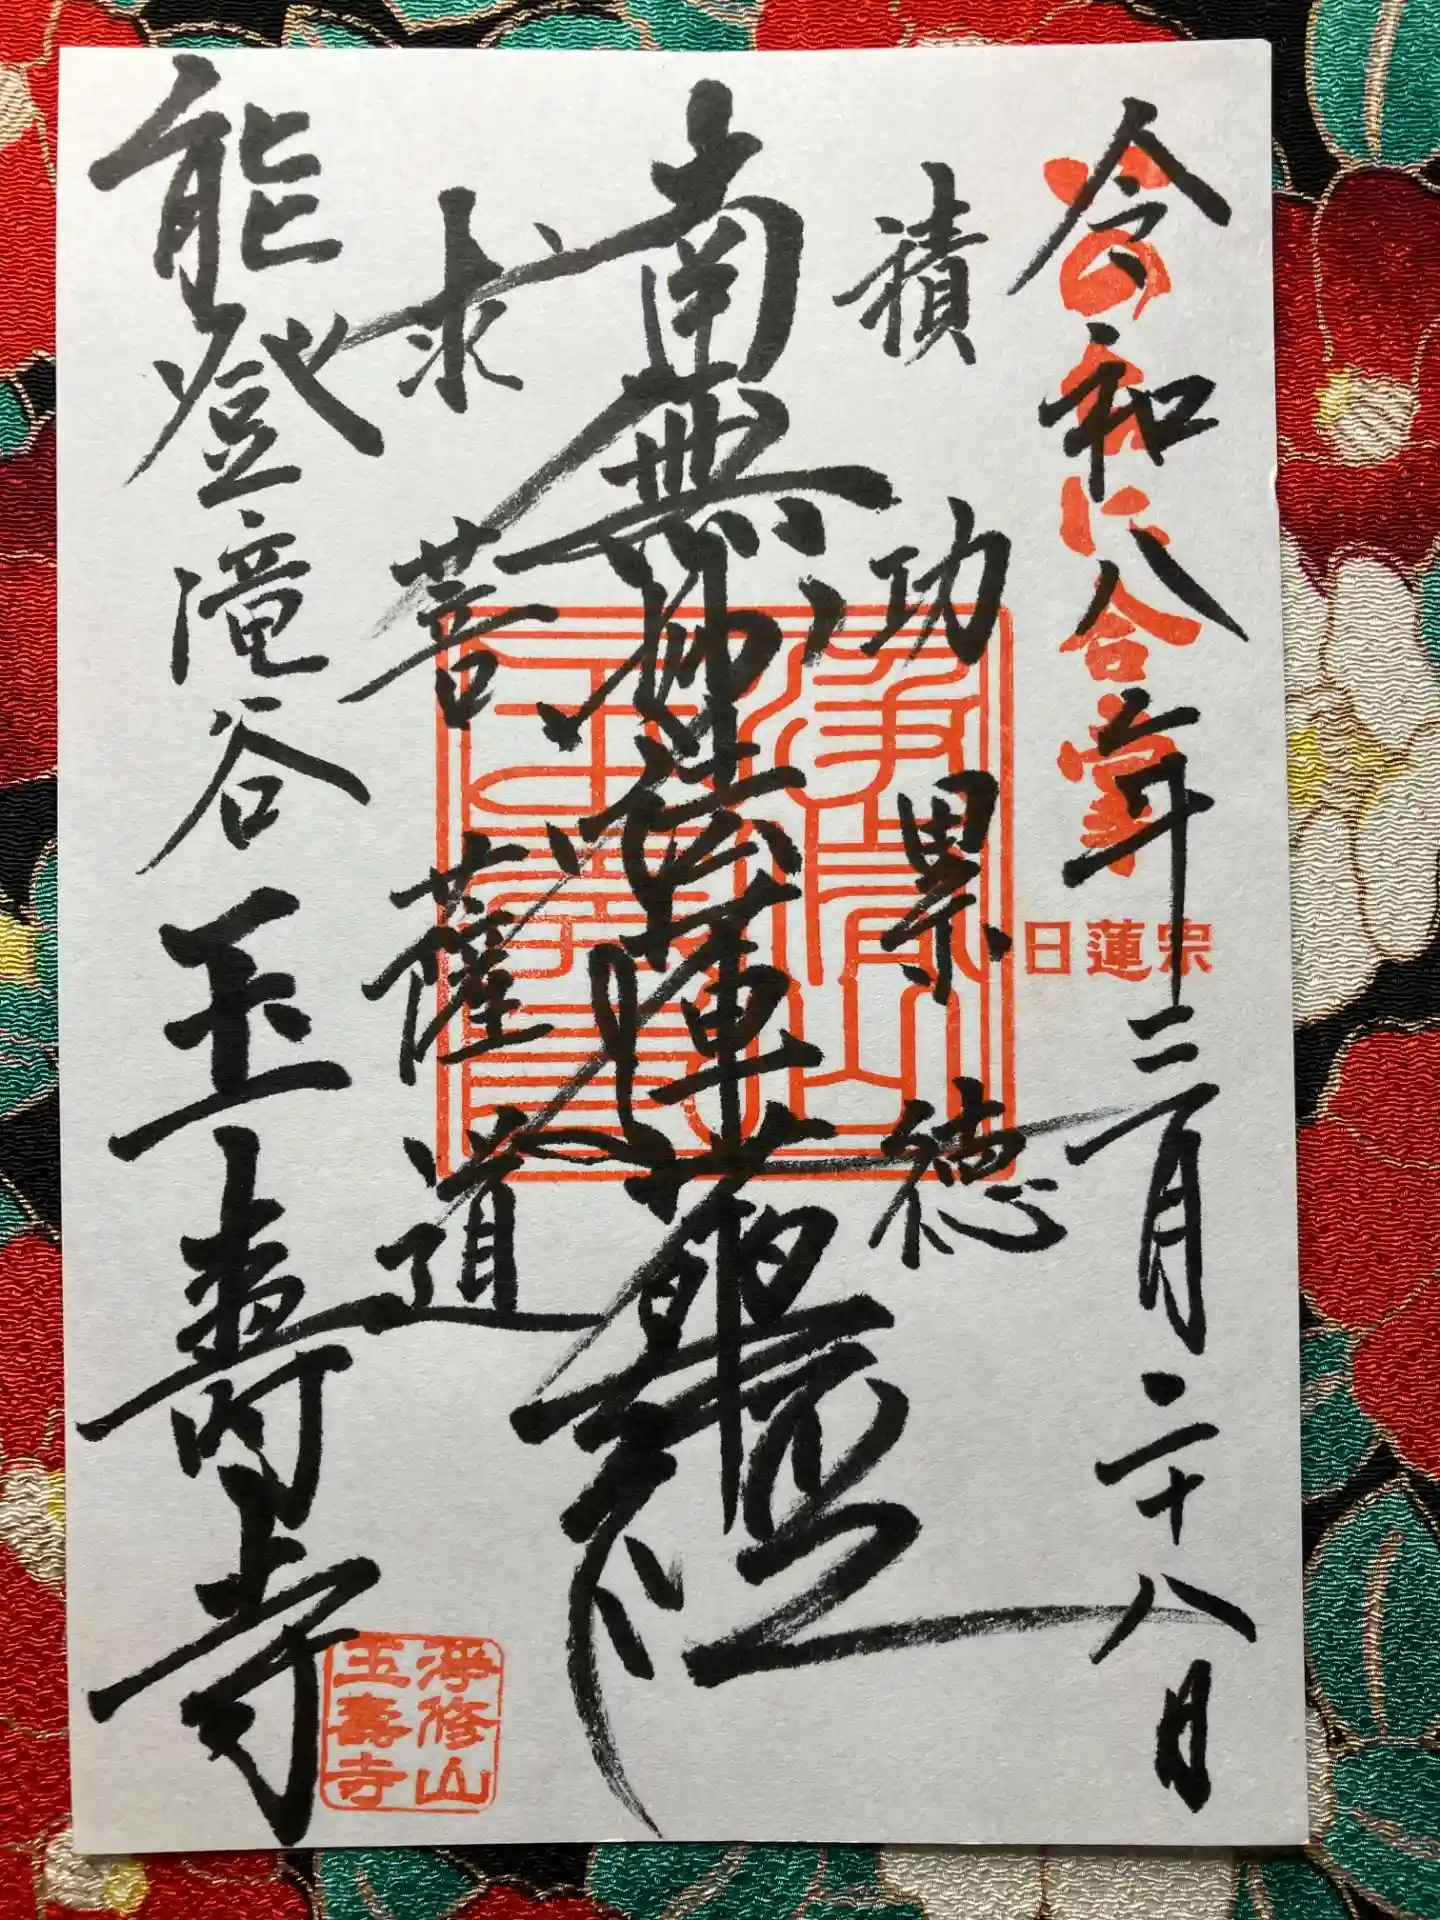 令和八年三月二十八日
いのちに合掌
日蓮宗
積功累徳
南無妙法蓮華経
求菩薩道
能登滝谷玉壽寺
淨修山
玉壽寺